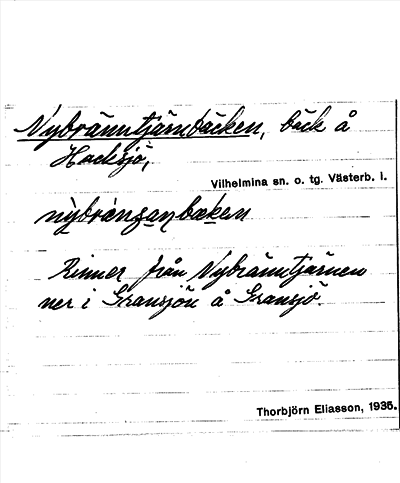 Nybränntjärnbäcken, bäck å
Hacksjö,
Vilhelmina sn. o. tg. Västerb. l.
Rinner från Nybränntjärnen
ner i Gransjön å Gransjö.
Thorbjörn Eliasson, 1935.